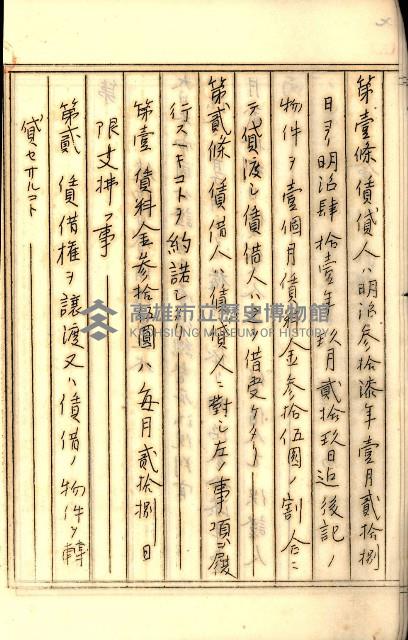 第壹條賃貸人ハ明治参拾漆年壹月貳拾捌
日ヨリ明治肆拾壹年玖月貳拾玖日迄後記ノ
物件ヲ壹個月賃料金参拾伍圓ノ割合ニ
テ貸渡シ賃借人ハ之ヲ借受ケタリ
第貳條賃借人ハ賃貸人ニ對シ左ノ事項ヲ履
行スヘキコトヲ約諾シ
第壹 賃料金参拾伍圓ハ毎月貳拾捌日
限支拂フ事
第貳 賃借權ヲ譲渡又ハ賃借ノ物件ヲ轉
貸セサルコト
高雄市立歷史博物館
KAOHSIUNG MUSEUM OF HISTORY